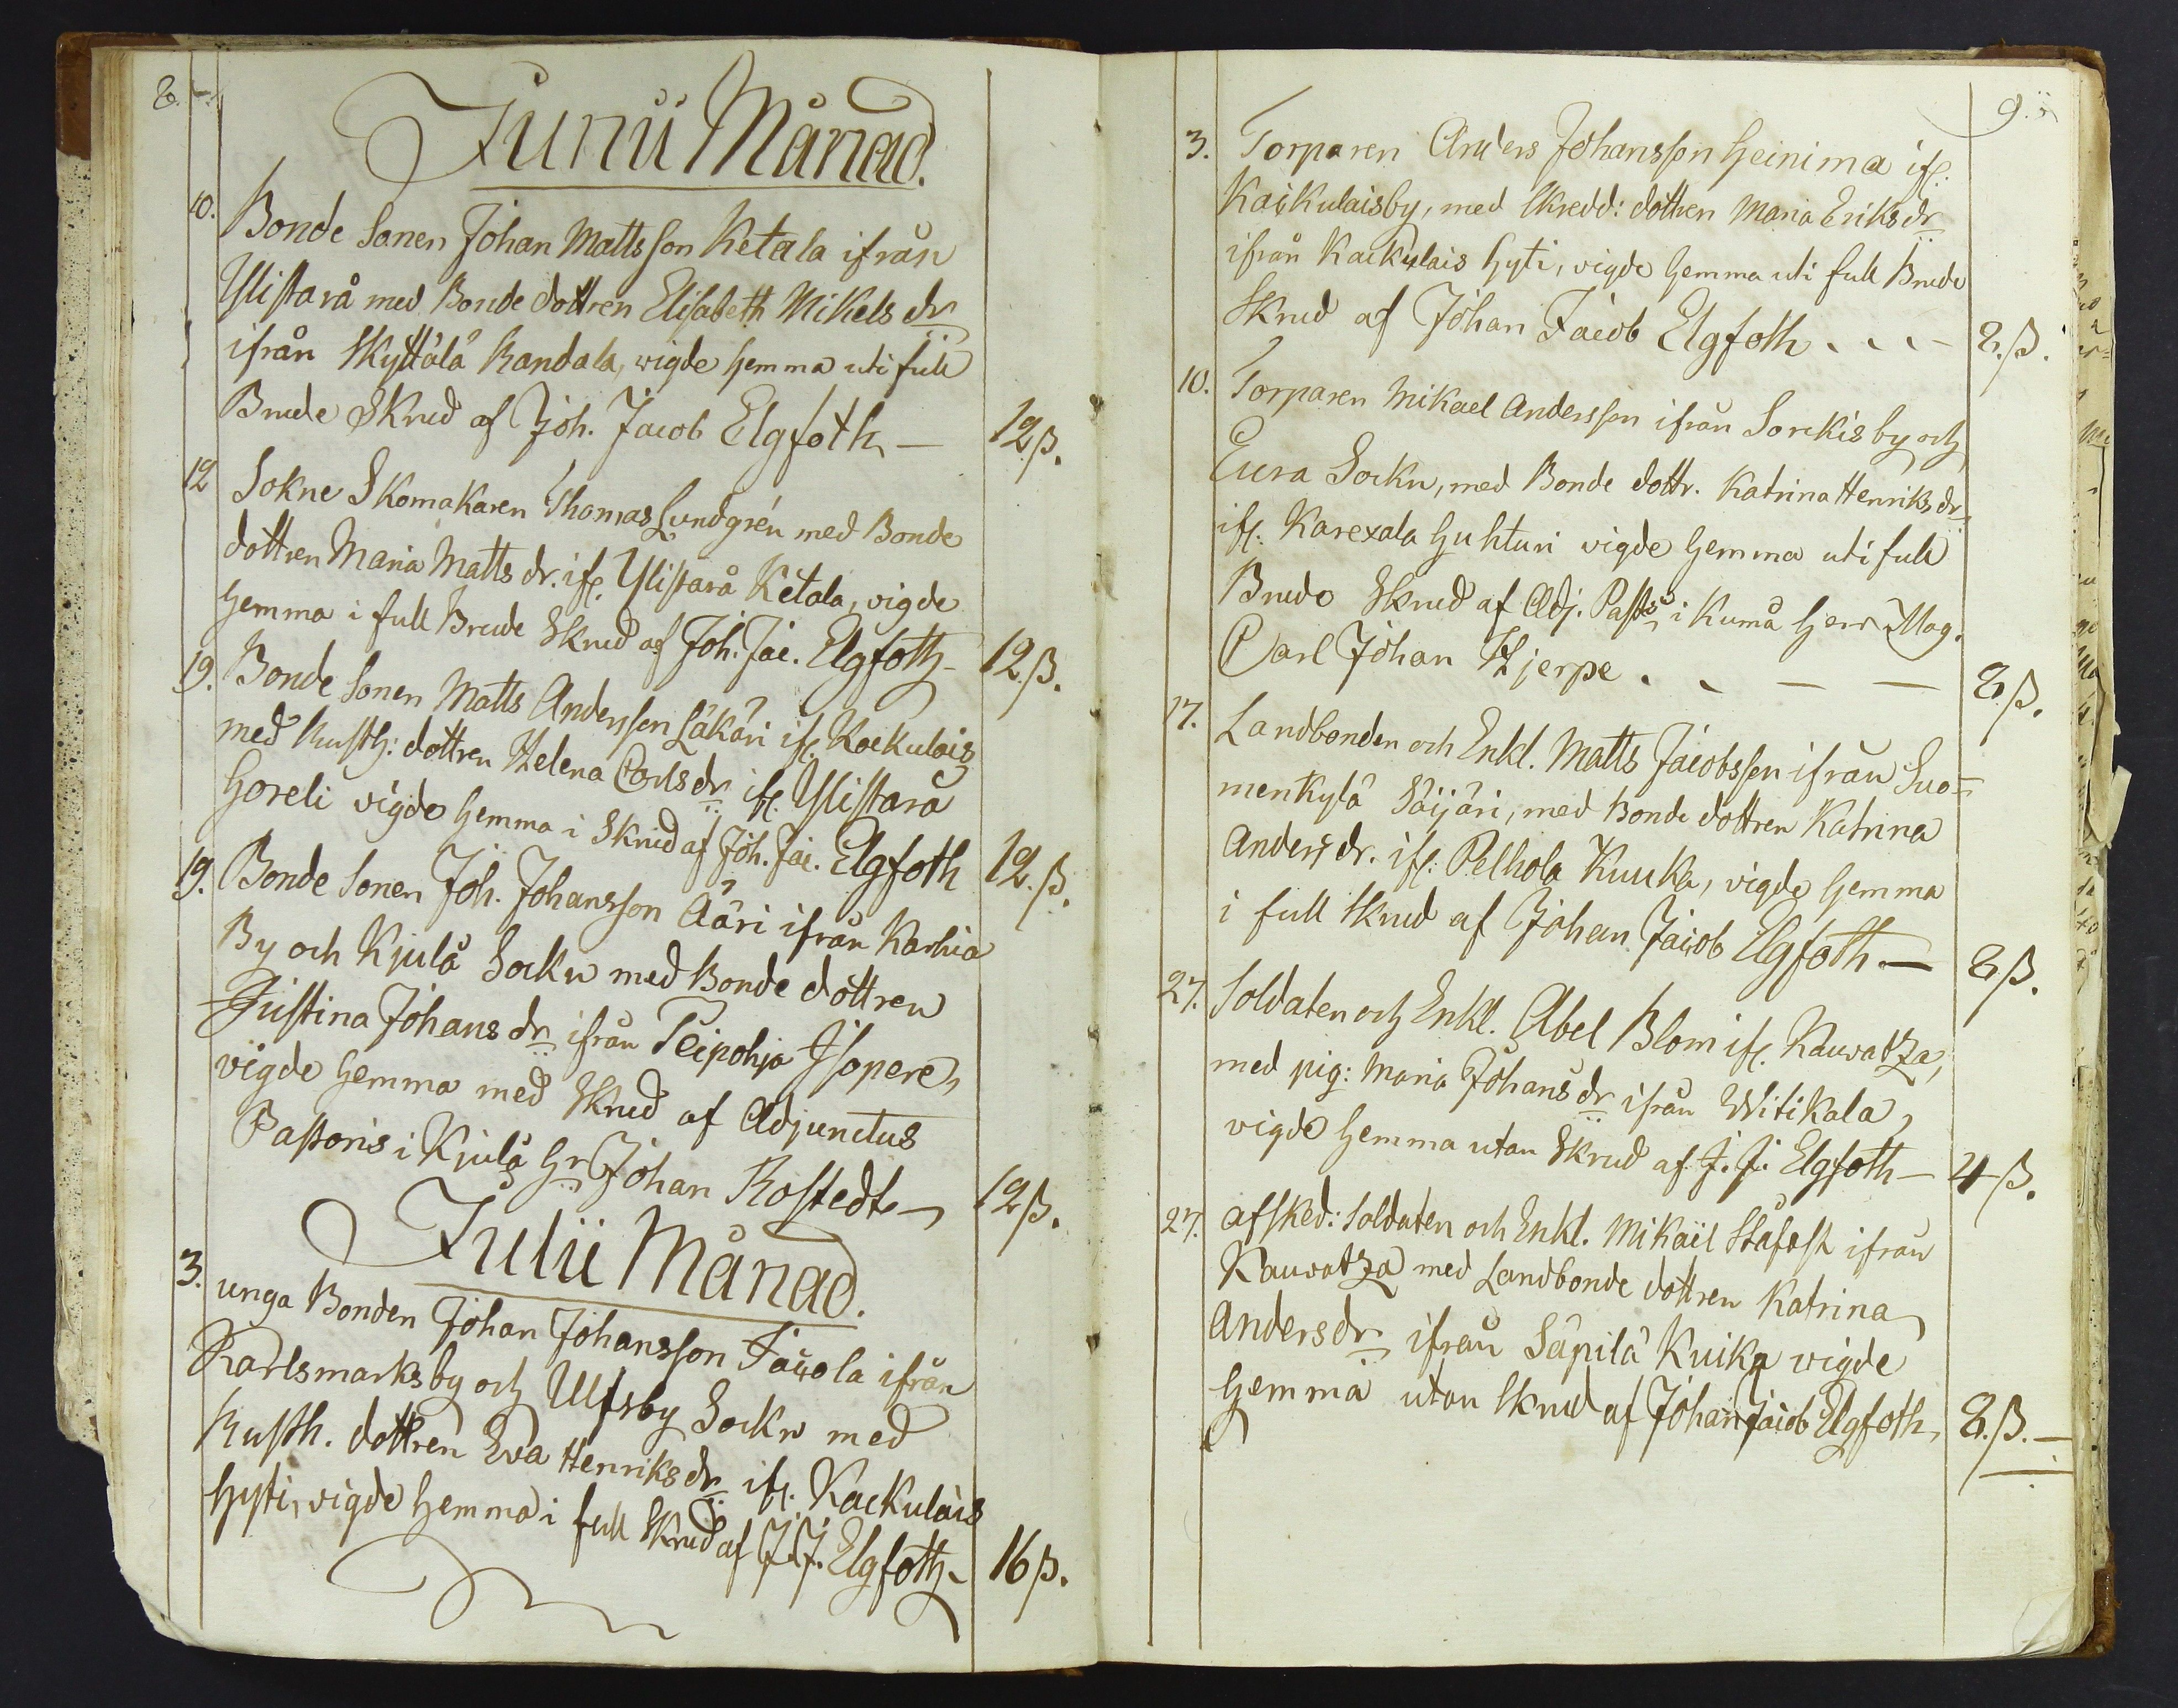 8.
Junii Månad.
10. Bonde Sonen Johan Mattsson Ketala ifrån
Ylistarå med Bonde dottren Elisabeth Mikels dr
ifrån Skyttälä Randala, vigde hemma uti full
Brude Skrud af Joh. Jacob Elgfoth — 12 β.
12 Sokne Skomakaren Thomas Lundgrén med Bonde
dottren Maria Matts dr. ifr. Ylistarå Ketala, vigde
hemma i full Brude Skrud af Joh. Jac. Elgfoth — 12 β.
19. Bonde Sonen Matts Andersson Läkäri ifr. Kackulais
med Rusth: dottren Helena Carls dr ifr. Ylistarå
Horeli vigde hemma i Skrud af Joh. Jac. Elgfoth 12. β.
19. Bonde Sonen Joh. Johansson Ääri ifrån Karhia
By och Kjulå Sockn med Bonde dottren
Justina Johans dr ifrån Teipohja Isopere,
vigde hemma med Skrud af Adjunctus
Pastoris i Kjulå Hr Johan Rostedt — 12 β.
Julii Månad.
3. unga Bonden Johan Johansson Jacola ifrån
Karlsmarks by och Ulfsby Sockn med
Rusth. dottren Eva Henriks dr ifr. Kackulais
Hyti, vigde hemma i full Skrud af J. J. Elgfoth — 16 β.
9.
3. Torparen Anders Johansson Heinima ifr.
Kackulaisby, med Skredd: dottren Maria Eriks dr
ifrån Kackulais Hyti, vigde hemma uti full Brude
Skrud af Johan Jacob Elgfoth . . . — 8. β.
10. Torparen Mikael Andersson ifrån Sorckis by och
Eura Sockn, med Bonde dottr. Katrina Henriks dr,
ifr. Karexala Huhturi vigde hemma uti full
Brude Skrud af Adj. Past: i Kumå Herr Mag.
Carl Johan Hjerpe . . — — 8. β.
17. Landbonden och Enkl. Matts Jacobsson ifrån Suo=
menkylä Säijäri, med Bonde dottren Katrina
Anders dr. ifr: Pelhola Kuuka, vigde hemma
i full Skrud af Johan Jacob Elgfoth — 8 β.
27. Soldaten och Enkl. Abel Blom ifr. Kauvatza,
med pig: Maria Johans dr ifrån Witikala,
vigde hemma utan Skrud af J. J. Elgfoth — 4 β.
27. afsked: Soldaten och Enkl. Mikaël Ståfast ifrån
Kauvatza med Landbonde dottren Katrina
Anders dr ifrån Säpilä Knika vigde
hemma utan Skrud af Johan Jacob Elgfoth, 8. β. —